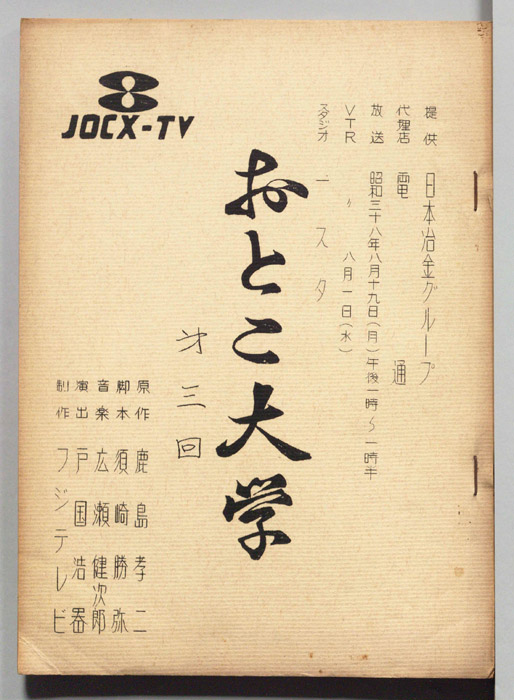 JOCX-TV
提供 日本冶金グループ
代理店 電通
放送 昭和三十八年八月十九日(月)午後一時〜一時半
VTR 〃 八月一日(水)
スタジオ 一スタ
おとこ大学
才三回
原作 鹿島孝二
脚本 須崎勝弥
音楽 広瀬健次郎
演出 戸国浩器
制作 フジテレビ